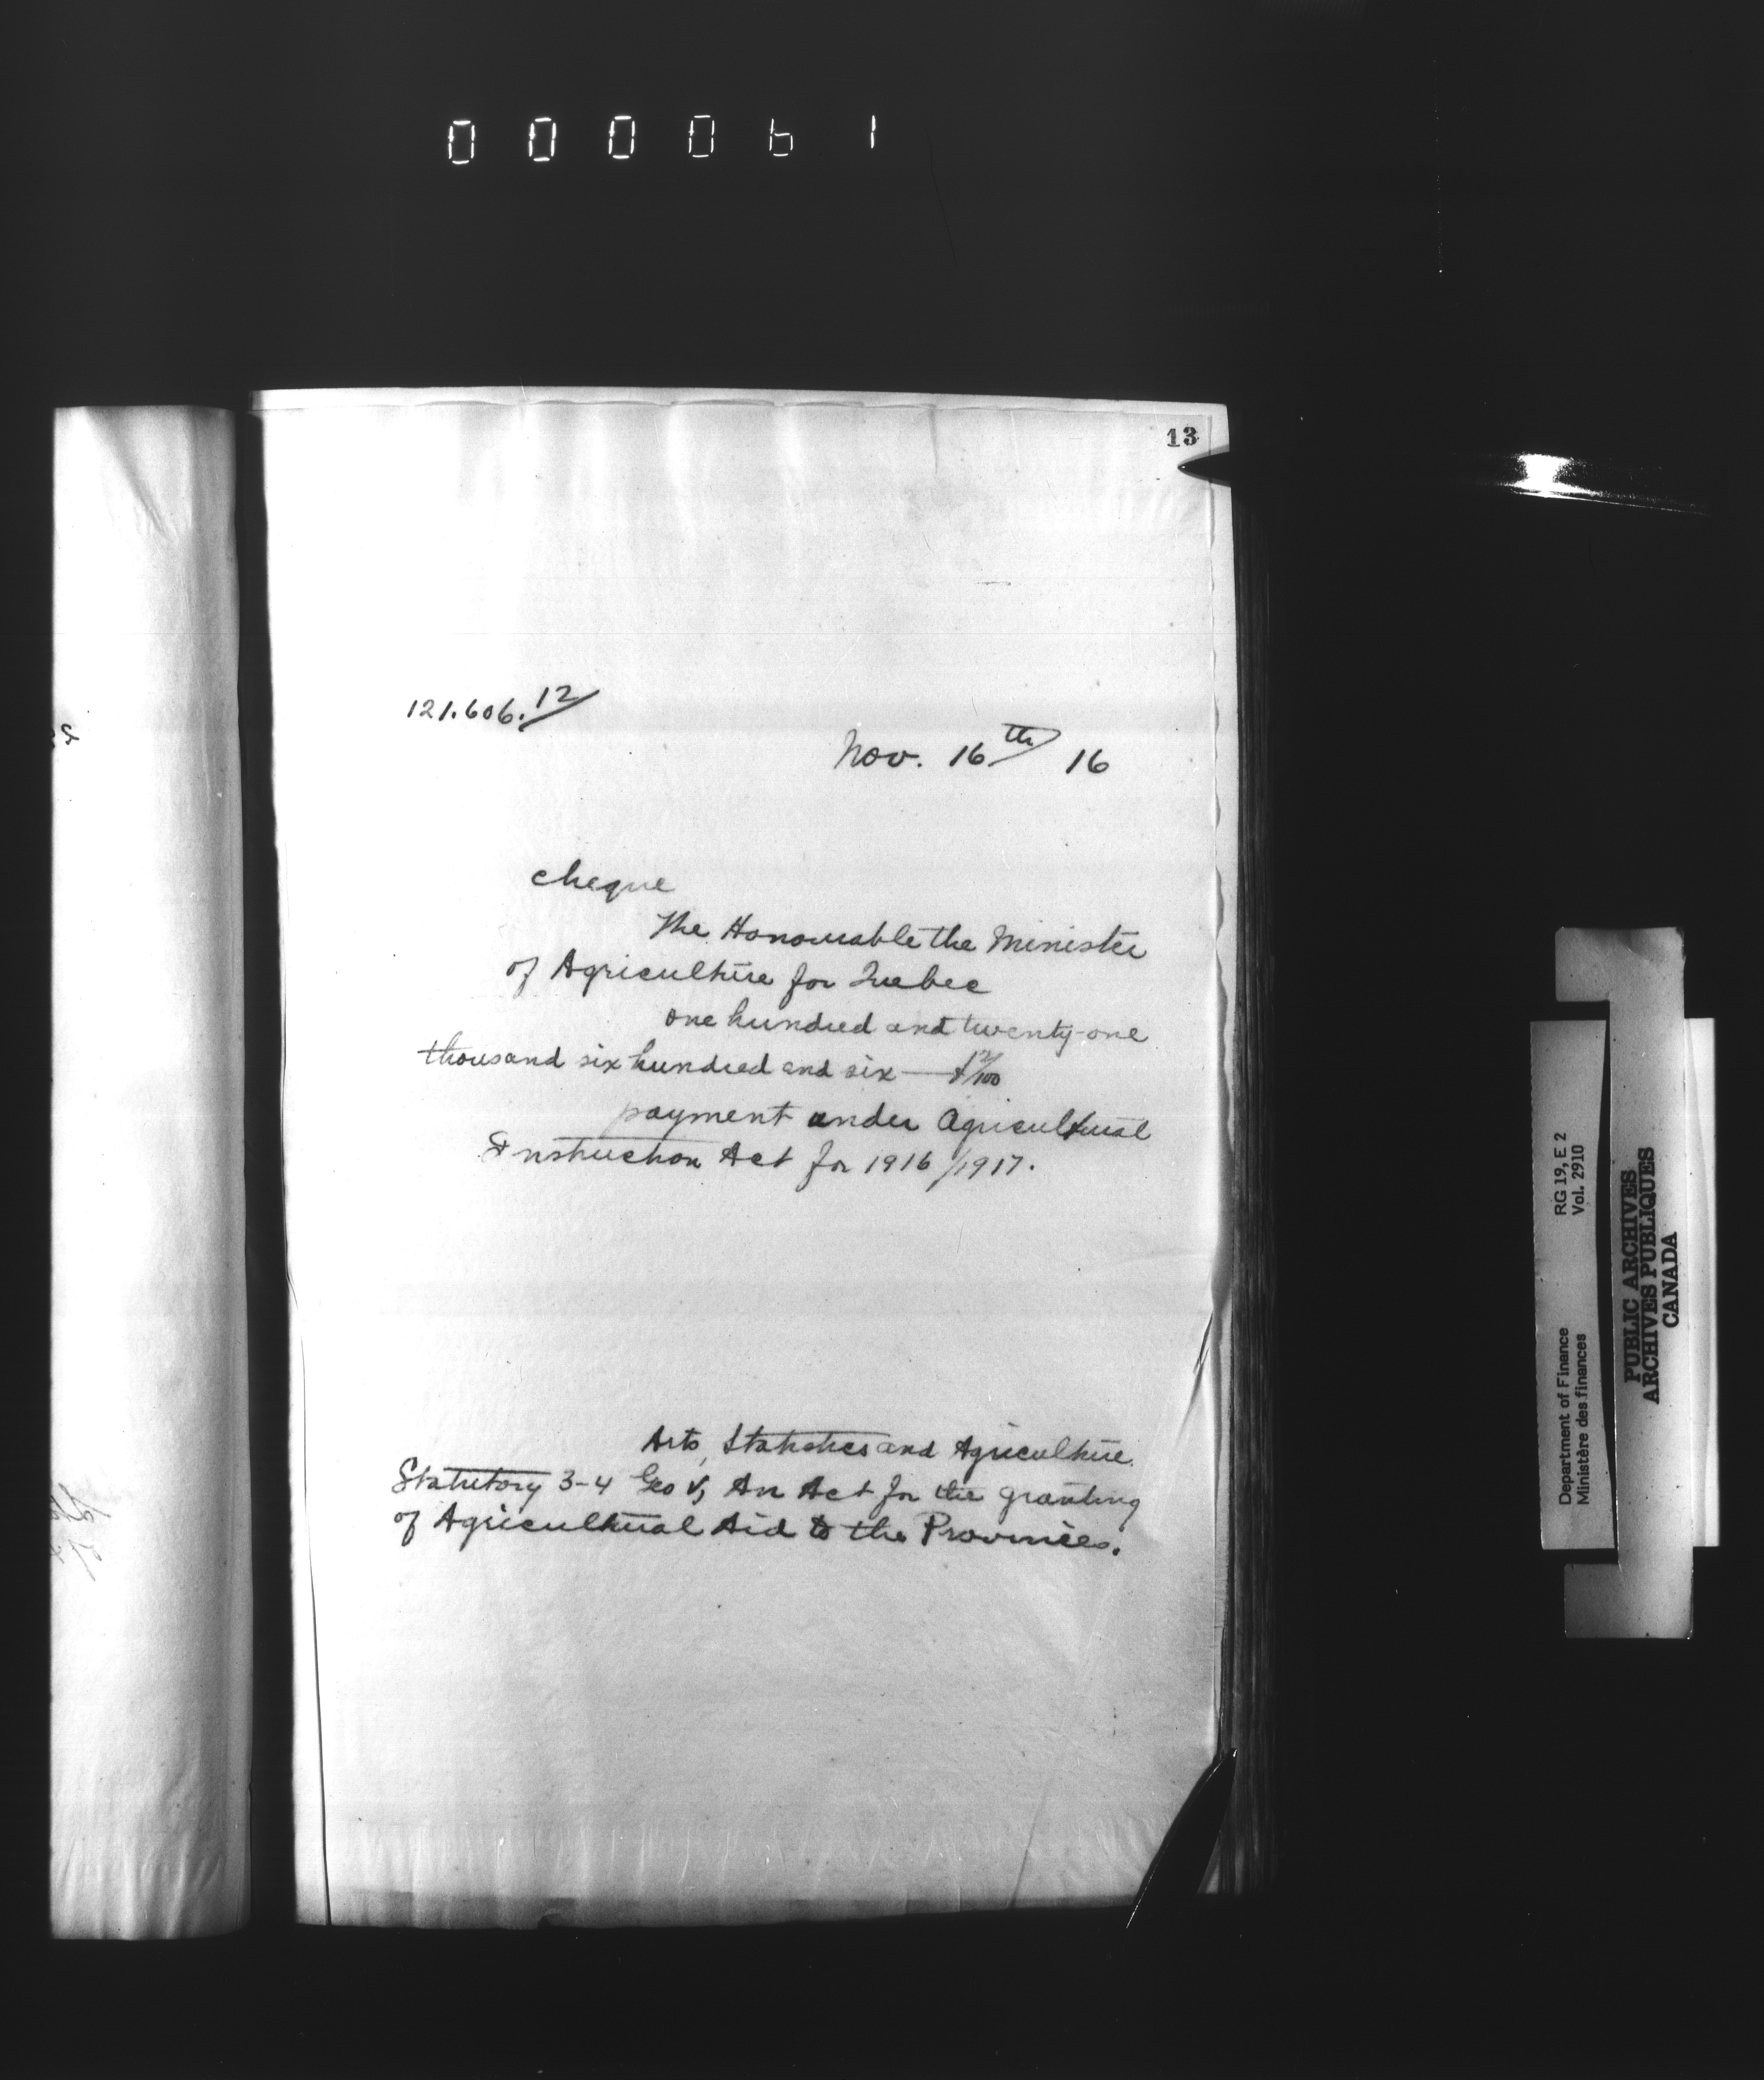 000061
13
121.606.12
Nov. 16th 16
cheque
The Honourable the Minister
of Agriculture for Quebec
one hundred and twenty-one
thousand six hundred and six — 12/100
payment under Agricultural
Instruction Act for 1916/1917.
Arts, Statistics and Agriculture.
Statutory 3-4 Geo V, An Act for the granting
of Agricultural Aid to the Provinces.
Department of Finance RG 19, E 2
Ministère des finances Vol. 2910
PUBLIC ARCHIVES
ARCHIVES PUBLIQUES
CANADA